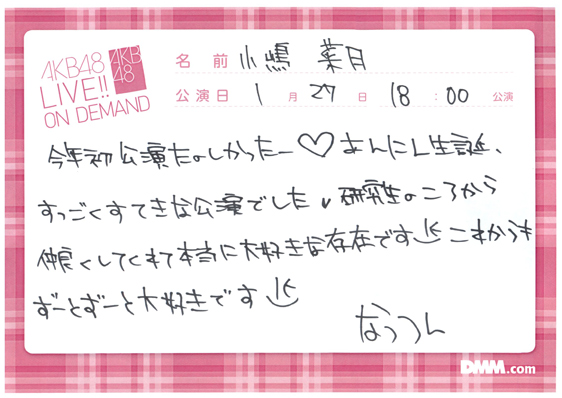 AKB48
LIVE!!
ON DEMAND
AKB
48
名前 小嶋 菜月
公演日 1月27日 18:00 公演
今年初公演たのしかったー♡ あんにん生誕、
すっごくすてきな公演でした♥研究生のころから
仲良くしてくれて本当に大好きな存在です これからも
ずーとずーと大好きです
なっつん
DMM.com